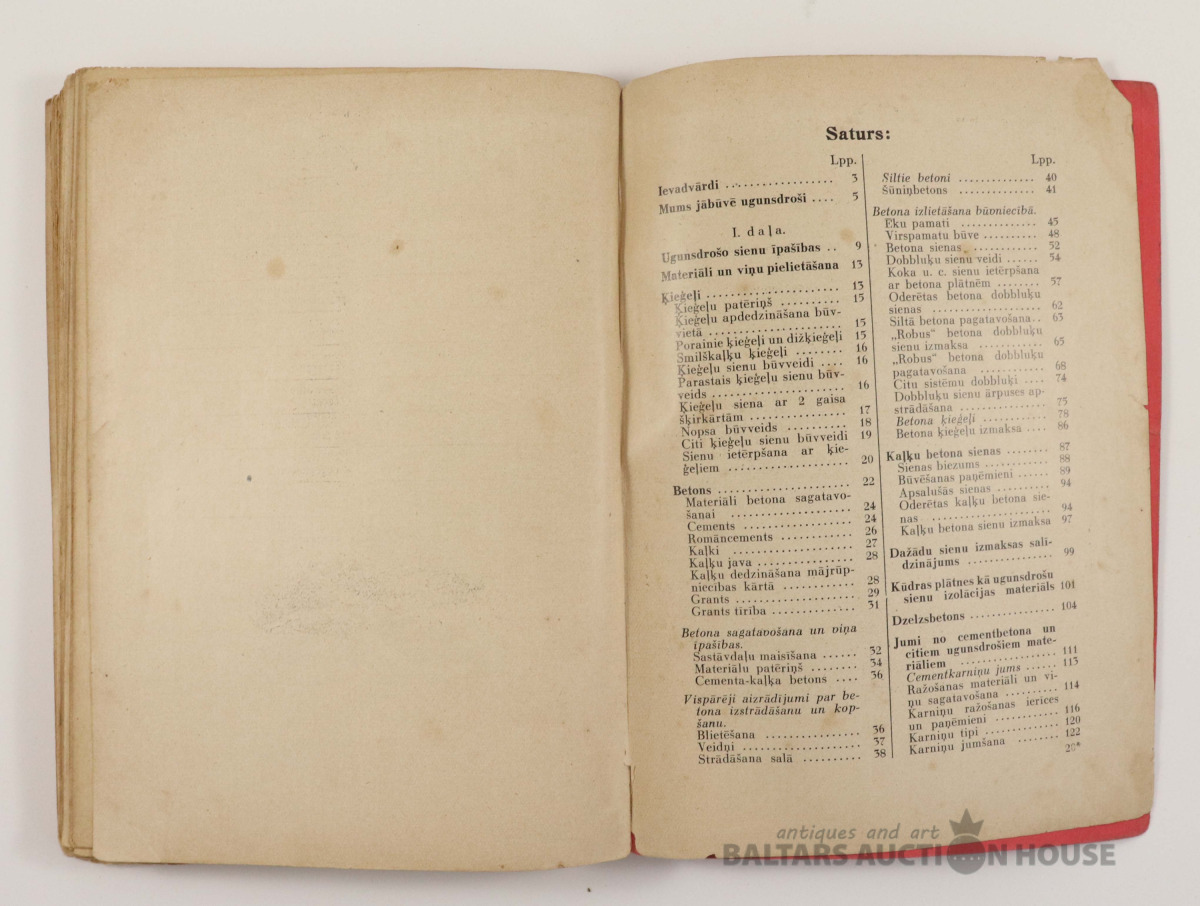 Saturs:
Lpp.
Ievadvārdi ................. 3
Mums jābūvē ugunsdroši .... 5
I. daļa.
Ugunsdrošo sienu īpašības .. 9
Materiāli un viņu pielietāšana 13
Ķieģeļi .................... 13
Ķieģeļu patēriņš .......... 15
Ķieģeļu apdedzināšana būv-
vietā ..................... 15
Porainie ķieģeļi un dižķieģeļi 15
Smilškaļķu ķieģeļi ........ 16
Ķieģeļu sienu būvveidi .... 16
Parastais ķieģeļu sienu būv-
veids ...................... 16
Ķieģeļu siena ar 2 gaisa
šķirkārtām ................ 17
Nopsa būvveids .......... 18
Citi ķieģeļu sienu būvveidi 19
Sienu ietērpšana ar ķie-
ģeļiem .................... 20
Betons ...................... 22
Materiāli betona sagatavo-
šanai .................... 24
Cements .................. 24
Romāncements ............ 26
Kaļķi .................... 27
Kaļķu java ................ 28
Kaļķu dedzināšana mājrūp-
niecības kārtā ............ 28
Grants .................... 29
Grants tīrība .............. 31
Betona sagatavošana un viņa
īpašības.
Sastāvdaļu maisīšana ...... 32
Materiālu patēriņš ........ 34
Cementa-kaļķa betons .... 36
Vispārēji aizrādījumi par be-
tona izstrādāšanu un kop-
šanu.
Blietēšana ................ 36
Veidņi .................... 37
Strādāšana salā .......... 38
Lpp.
Siltie betoni .............. 40
Šūniņbetons .............. 41
Betona izlietāšana būvniecībā.
Ēku pamati .............. 45
Virspamatu būve .......... 48
Betona sienas ............ 52
Dobbluķu sienu veidi ...... 54
Koka u. c. sienu ietērpšana
ar betona plātnēm ........ 57
Oderētas betona dobbluķu
sienas .................... 62
Siltā betona pagatavošana.. 63
„Robus“ betona dobbluķu
sienu izmaksa ............ 65
„Robus“ betona dobbluķu
pagatavošana ............ 68
Citu sistēmu dobbluķi .... 74
Dobbluķu sienu ārpuses ap-
strādāšana ................ 75
Betona ķieģeļi ............ 78
Betona ķieģeļu izmaksa .... 86
Kaļķu betona sienas ........ 87
Sienas biezums ............ 88
Būvēšanas paņēmieni ...... 89
Apsalušās sienas .......... 94
Oderētas kaļķu betona sie-
nas ...................... 94
Kaļķu betona sienu izmaksa 97
Dažādu sienu izmaksas salī-
dzinājums ................ 99
Kūdras plātnes kā ugunsdrošu
sienu izolācijas materiāls 101
Dzelzsbetons .............. 104
Jumi no cementbetona un
citiem ugunsdrošiem mate-
riāliem .................. 111
Cementkarniņu jums ...... 113
Ražošanas materiāli un vi-
ņu sagatavošana .......... 114
Karniņu ražošanas ierīces
un paņēmieni ............ 116
Karniņu tipi .............. 120
Karniņu jumšana ........ 122
28*
antiques and art
BALTARS AUCTION HOUSE